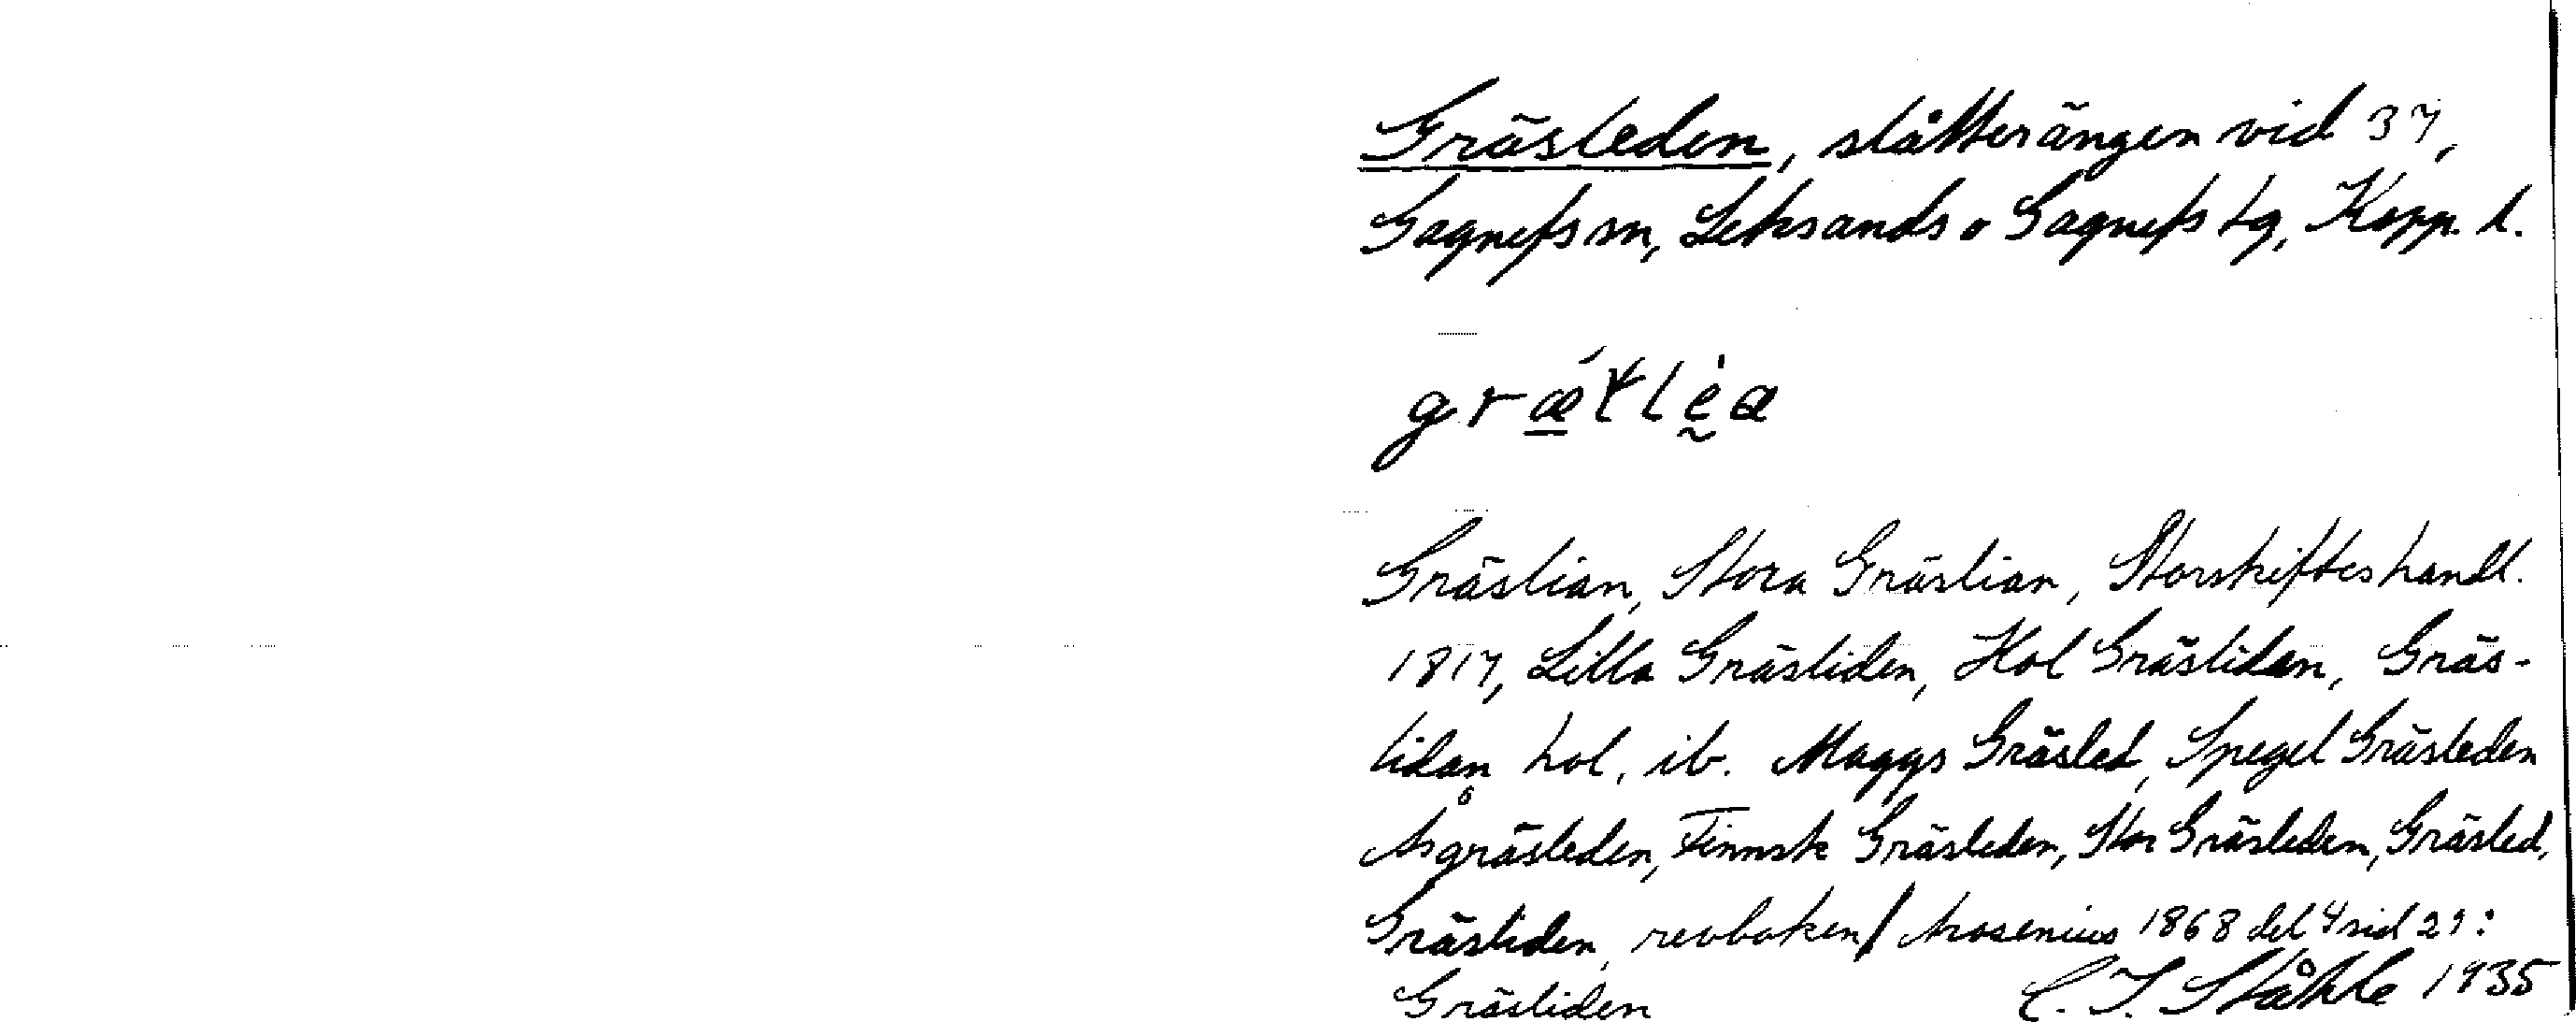 Gräsleden, slåtterängen vid 37,
Gagnefs sn, Leksands o Gagnefs tg, Kopp. l.
Gräslian, Stora Gräslian, Storskifteshandl.
1817, Lilla Gräsliden, Hol Gräslidan, Gräs-
lidan hol, ib. Maggs Gräsled, Spegel Gräsleden
Åsgräsleden, Finnsk Gräsleden, Stor Gräsleden, Gräsled,
Gräsliden, revboken/ Arosenius 1868 del 4 sid 29:
Gräsliden C. I. Ståhle 1935